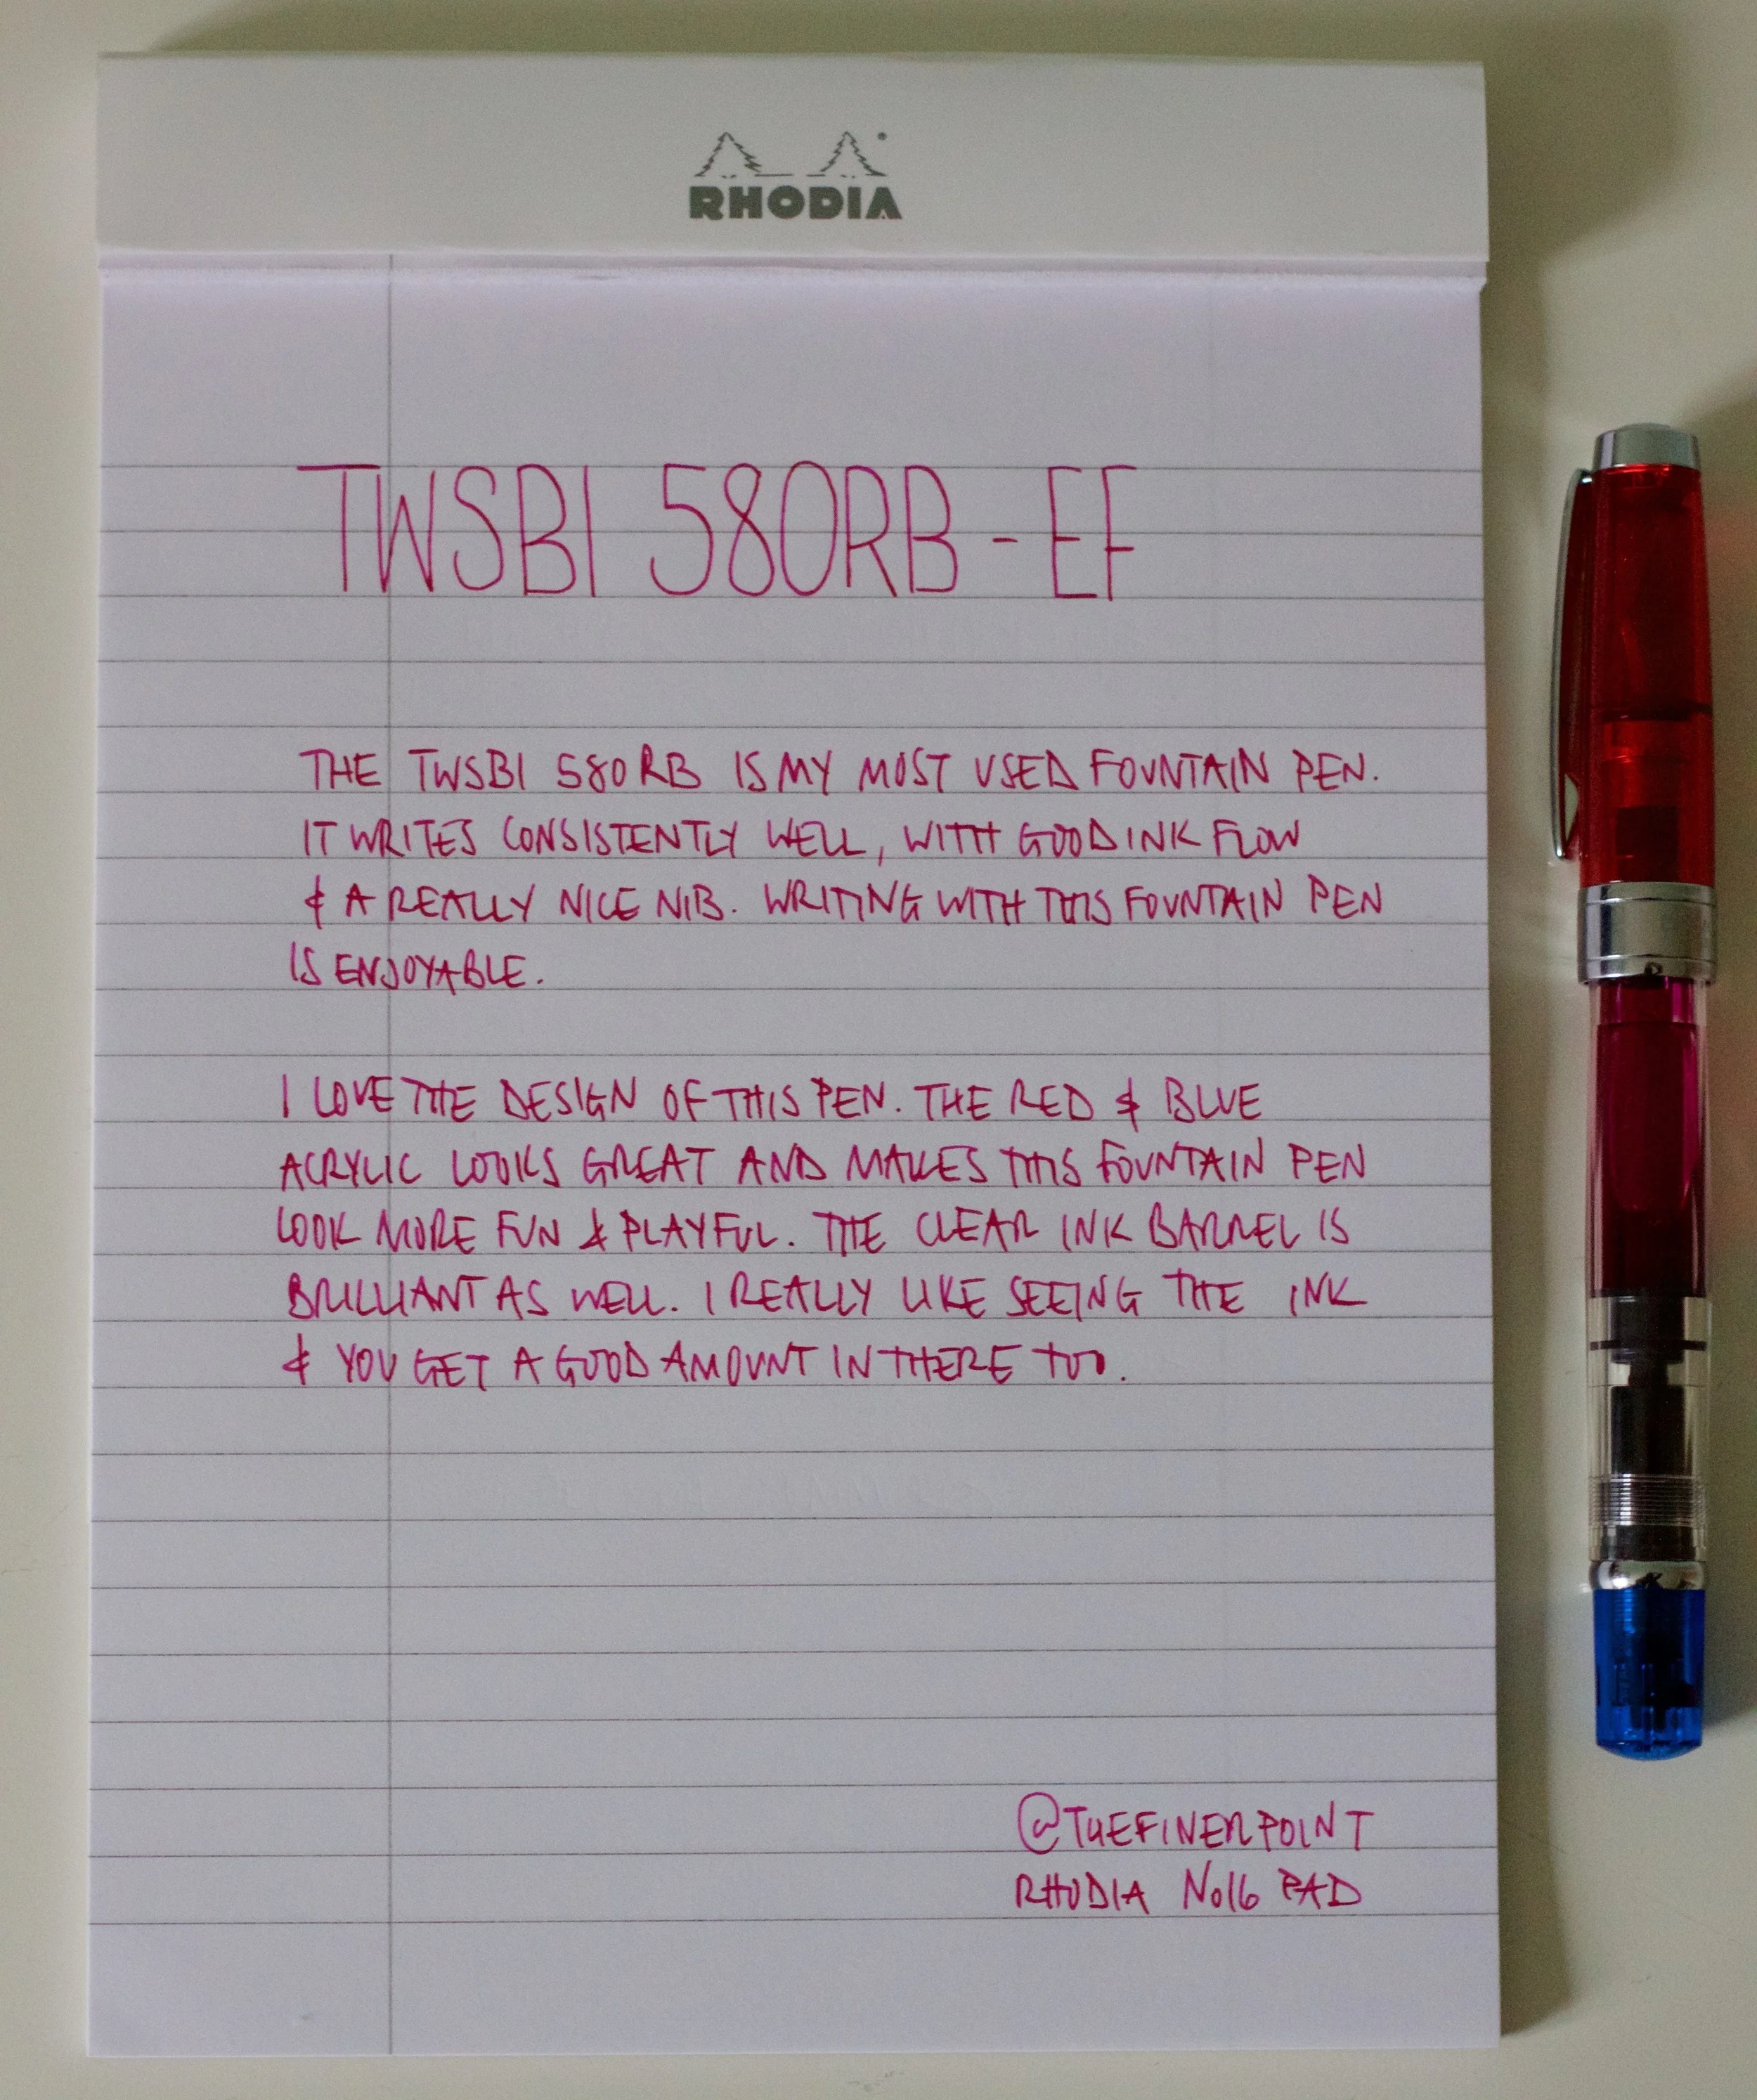 RHODIA
TWSBI 580RB - EF
THE TWSBI 580RB IS MY MOST USED FOUNTAIN PEN.
IT WRITES CONSISTENTLY WELL, WITH GOOD INK FLOW
& A REALLY NICE NIB. WRITING WITH THIS FOUNTAIN PEN
IS ENJOYABLE.
I LOVE THE DESIGN OF THIS PEN. THE RED & BLUE
ACRYLIC LOOKS GREAT AND MAKES THIS FOUNTAIN PEN
LOOK MORE FUN & PLAYFUL. THE CLEAR INK BARREL IS
BRILLIANT AS WELL. I REALLY LIKE SEEING THE INK
& YOU GET A GOOD AMOUNT IN THERE TOO.
@THEFINERPOINT
RHODIA No16 PAD